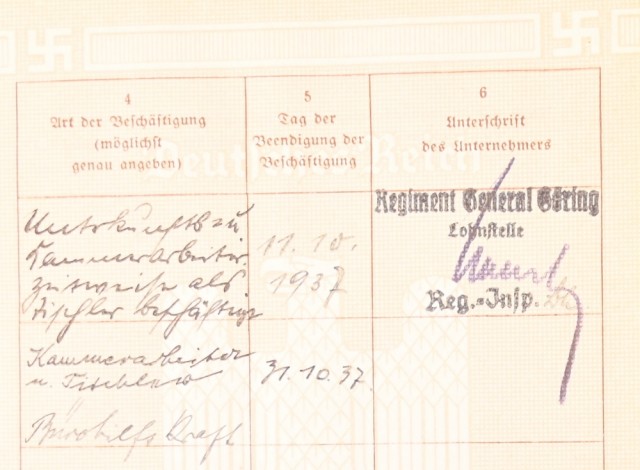 4
Art der Beschäftigung
(möglichst
genau angeben)
5
Tag der
Beendigung der
Beschäftigung
6
Unterschrift
des Unternehmers
Deutsches Reich
Unterkunfts- u.
Kammerarbeiter,
zeitweise als
Tischler beschäftigt
11.10.
1937
Regiment General Göring
Lohnstelle
Reg.-Insp.
Kammerarbeiter
u. Tischler
31.10.37.
Bürohilfskraft